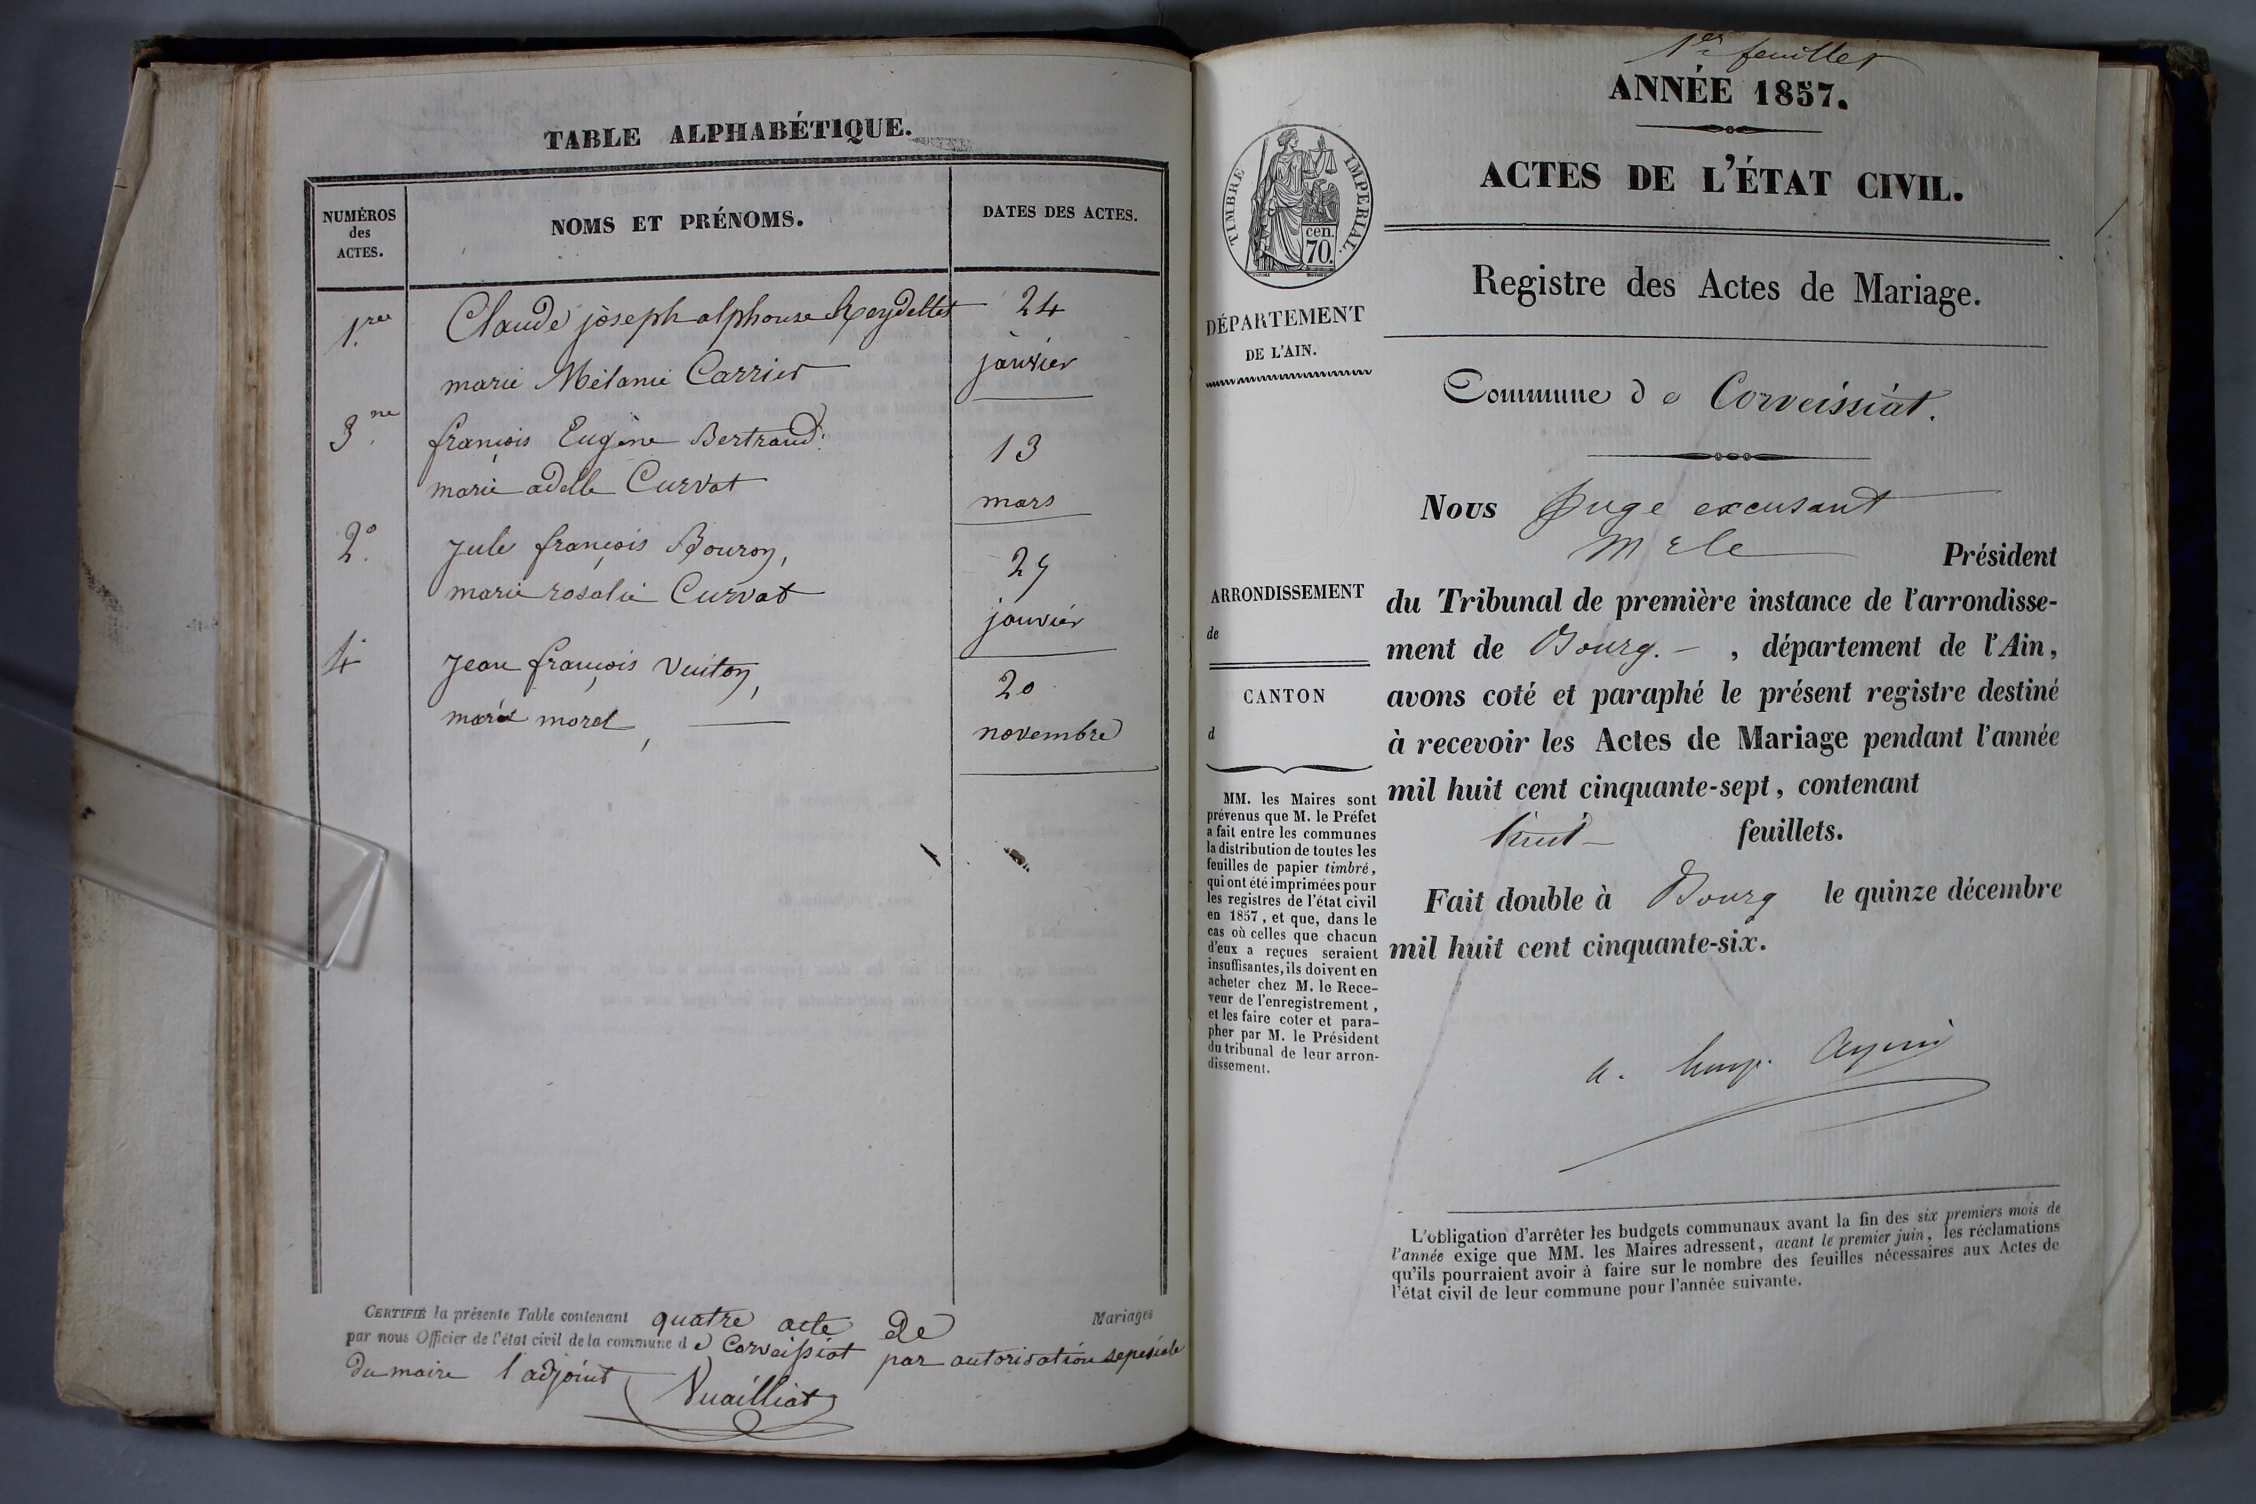 TABLE ALPHABÉTIQUE.
NUMÉROS
des
ACTES.
NOMS ET PRÉNOMS.
DATES DES ACTES.
1.re
Claude joseph alphonse Reydellet
24
marie Mélanie Carrier
janvier
3.me
françois Eugène Bertrand.
13
marie adelle Curvat
mars
2.e
Jule françois Bouron,
29
marie rosalie Curvat
janvier
4
Jean françois Vuiton,
20
marie morel,
novembre
CERTIFIÉ la présente Table contenant quatre acte de Mariages
par nous Officier de l'état civil de la commune de Corveissiat par autorisation
du maire l'adjoint Vuailliat
1er feuillet
ANNÉE 1857.
ACTES DE L'ÉTAT CIVIL.
TIMBRE IMPÉRIAL.
cen.
70.
Registre des Actes de Mariage.
DÉPARTEMENT
DE L'AIN.
Commune de Corveissiat.
Nous Juge excusant
Mr le Président
ARRONDISSEMENT
de
CANTON
d
du Tribunal de première instance de l'arrondisse-
ment de Bourg. , département de l'Ain,
avons coté et paraphé le présent registre destiné
à recevoir les Actes de Mariage pendant l'année
mil huit cent cinquante-sept, contenant
huit feuillets.
Fait double à Bourg le quinze décembre
mil huit cent cinquante-six.
MM. les Maires sont
prévenus que M. le Préfet
a fait entre les communes
la distribution de toutes les
feuilles de papier timbré,
qui ont été imprimées pour
les registres de l'état civil
en 1857, et que, dans le
cas où celles que chacun
d'eux a reçues seraient
insuffisantes, ils doivent en
acheter chez M. le Rece-
veur de l'enregistrement,
et les faire coter et para-
pher par M. le Président
du tribunal de leur arron-
dissement.
L'obligation d'arrêter les budgets communaux avant la fin des six premiers mois de
l'année exige que MM. les Maires adressent, avant le premier juin, les réclamations
qu'ils pourraient avoir à faire sur le nombre des feuilles nécessaires aux Actes de
l'état civil de leur commune pour l'année suivante.